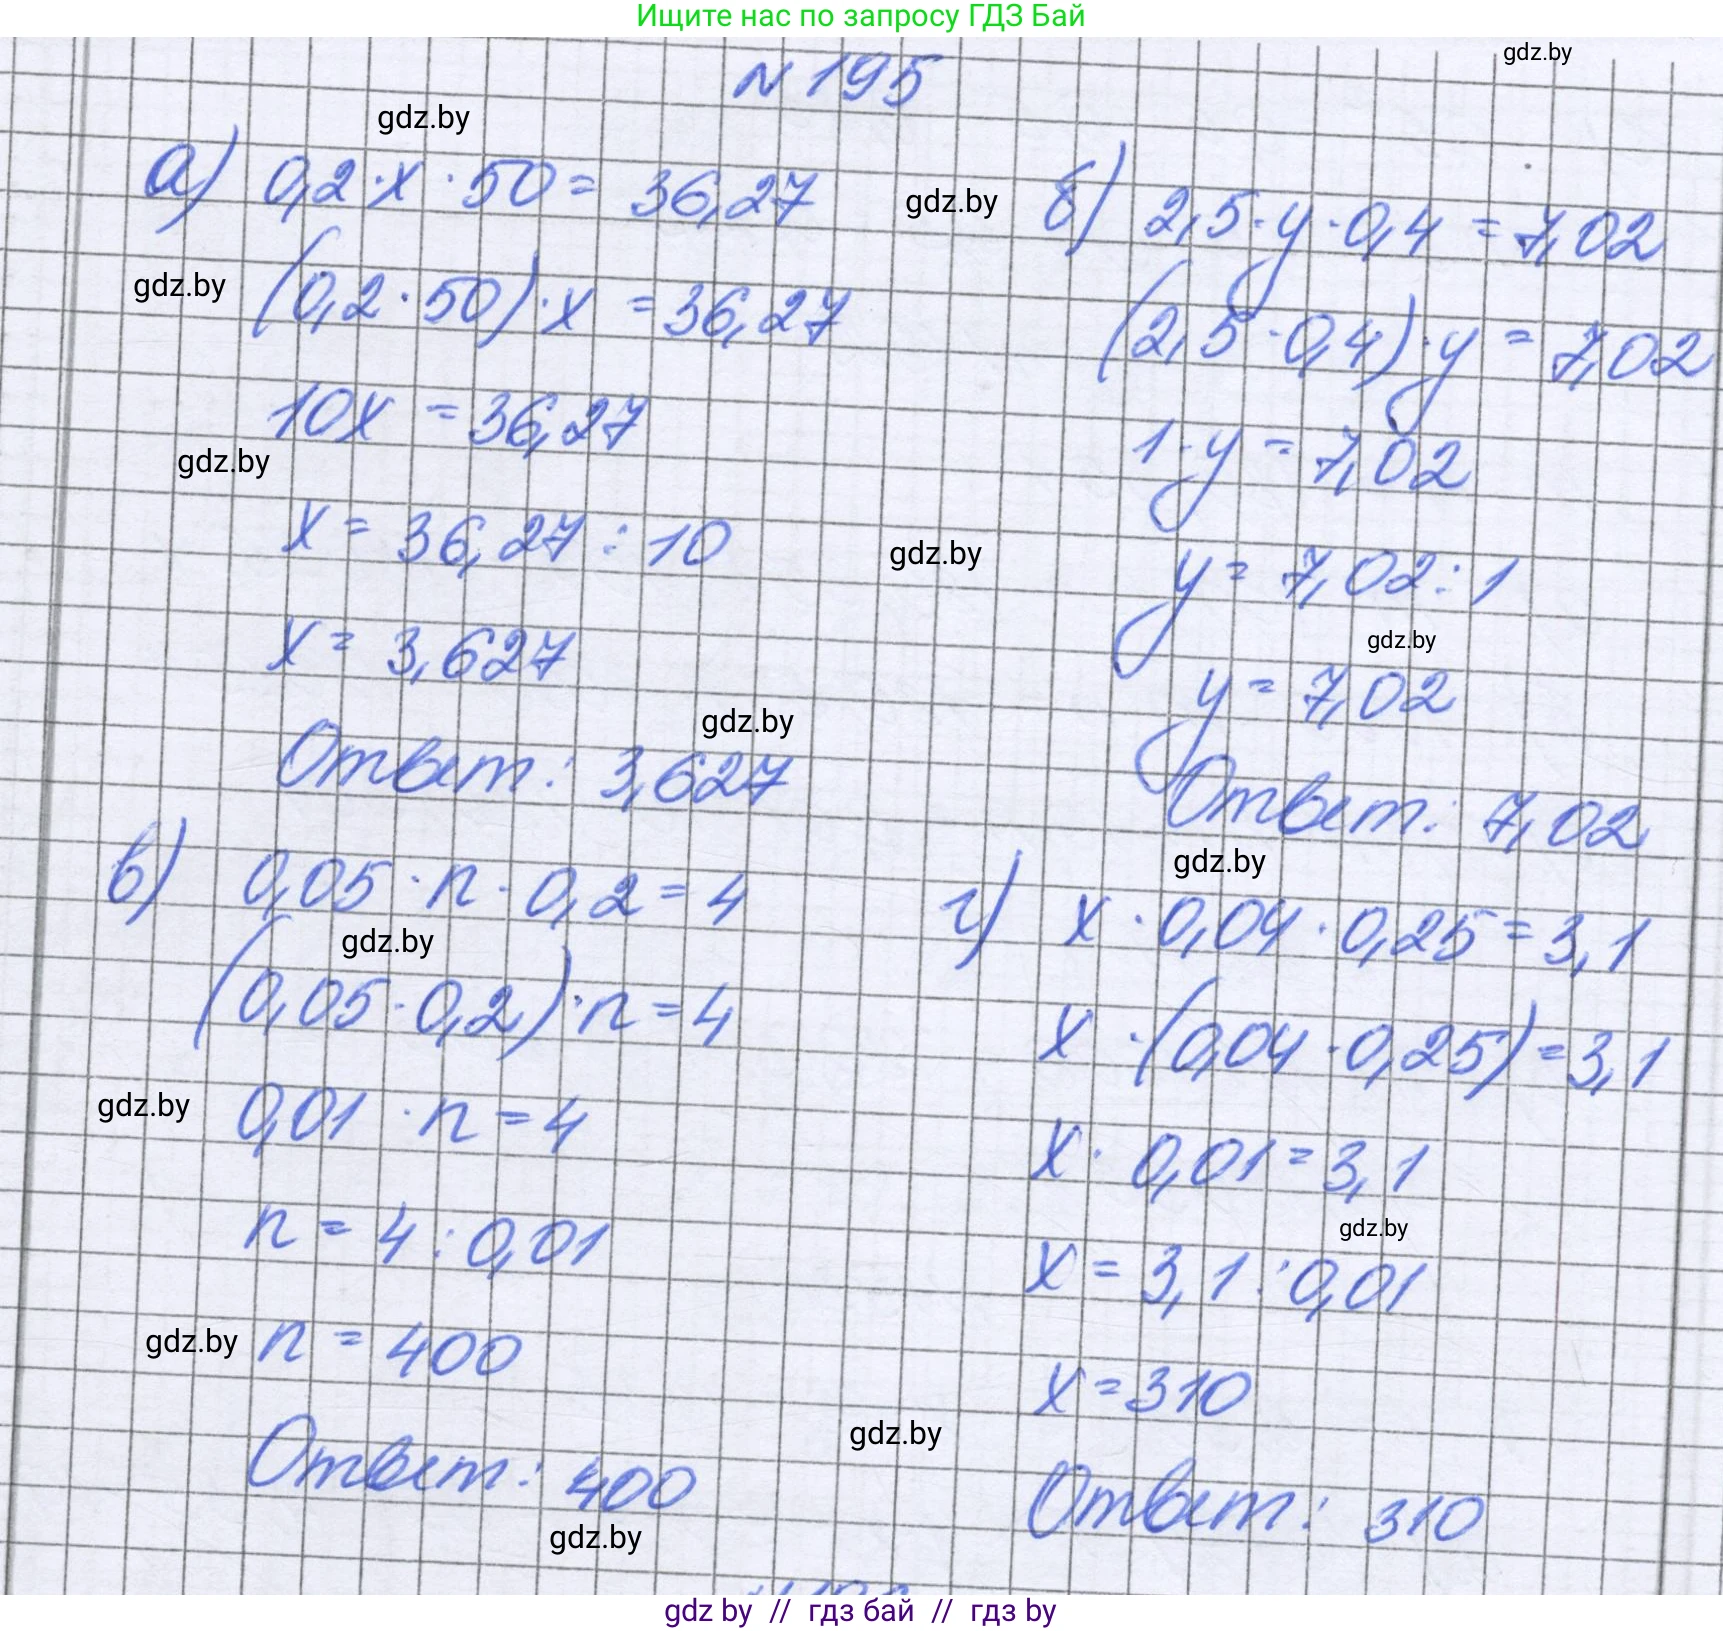 Ищите нас по запросу ГДЗ Бай
gdz.by
N 195
gdz.by
а) 0,2·x·50 = 36,27
gdz.by
(0,2·50)·x = 36,27
gdz.by
10x = 36,27
gdz.by
x = 36,27 : 10
x = 3,627
gdz.by
Ответ: 3,627
б) 2,5·y·0,4 = 7,02
gdz.by
(2,5·0,4)·y = 7,02
1·y = 7,02
gdz.by
y = 7,02 : 1
gdz.by
y = 7,02
Ответ: 7,02
gdz.by
в) 0,05·n·0,2 = 4
gdz.by
(0,05·0,2)·n = 4
gdz.by
0,01·n = 4
n = 4 : 0,01
gdz.by
n = 400
Ответ: 400
gdz.by
г) x·0,04·0,25 = 3,1
x·(0,04·0,25) = 3,1
x·0,01 = 3,1
gdz.by
x = 3,1 : 0,01
x = 310
gdz.by
Ответ: 310
gdz by // гдз бай // гдз by